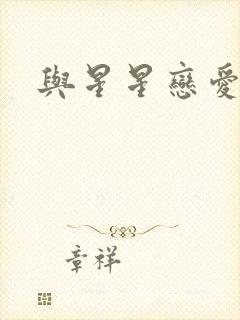 與星星戀愛
章祥